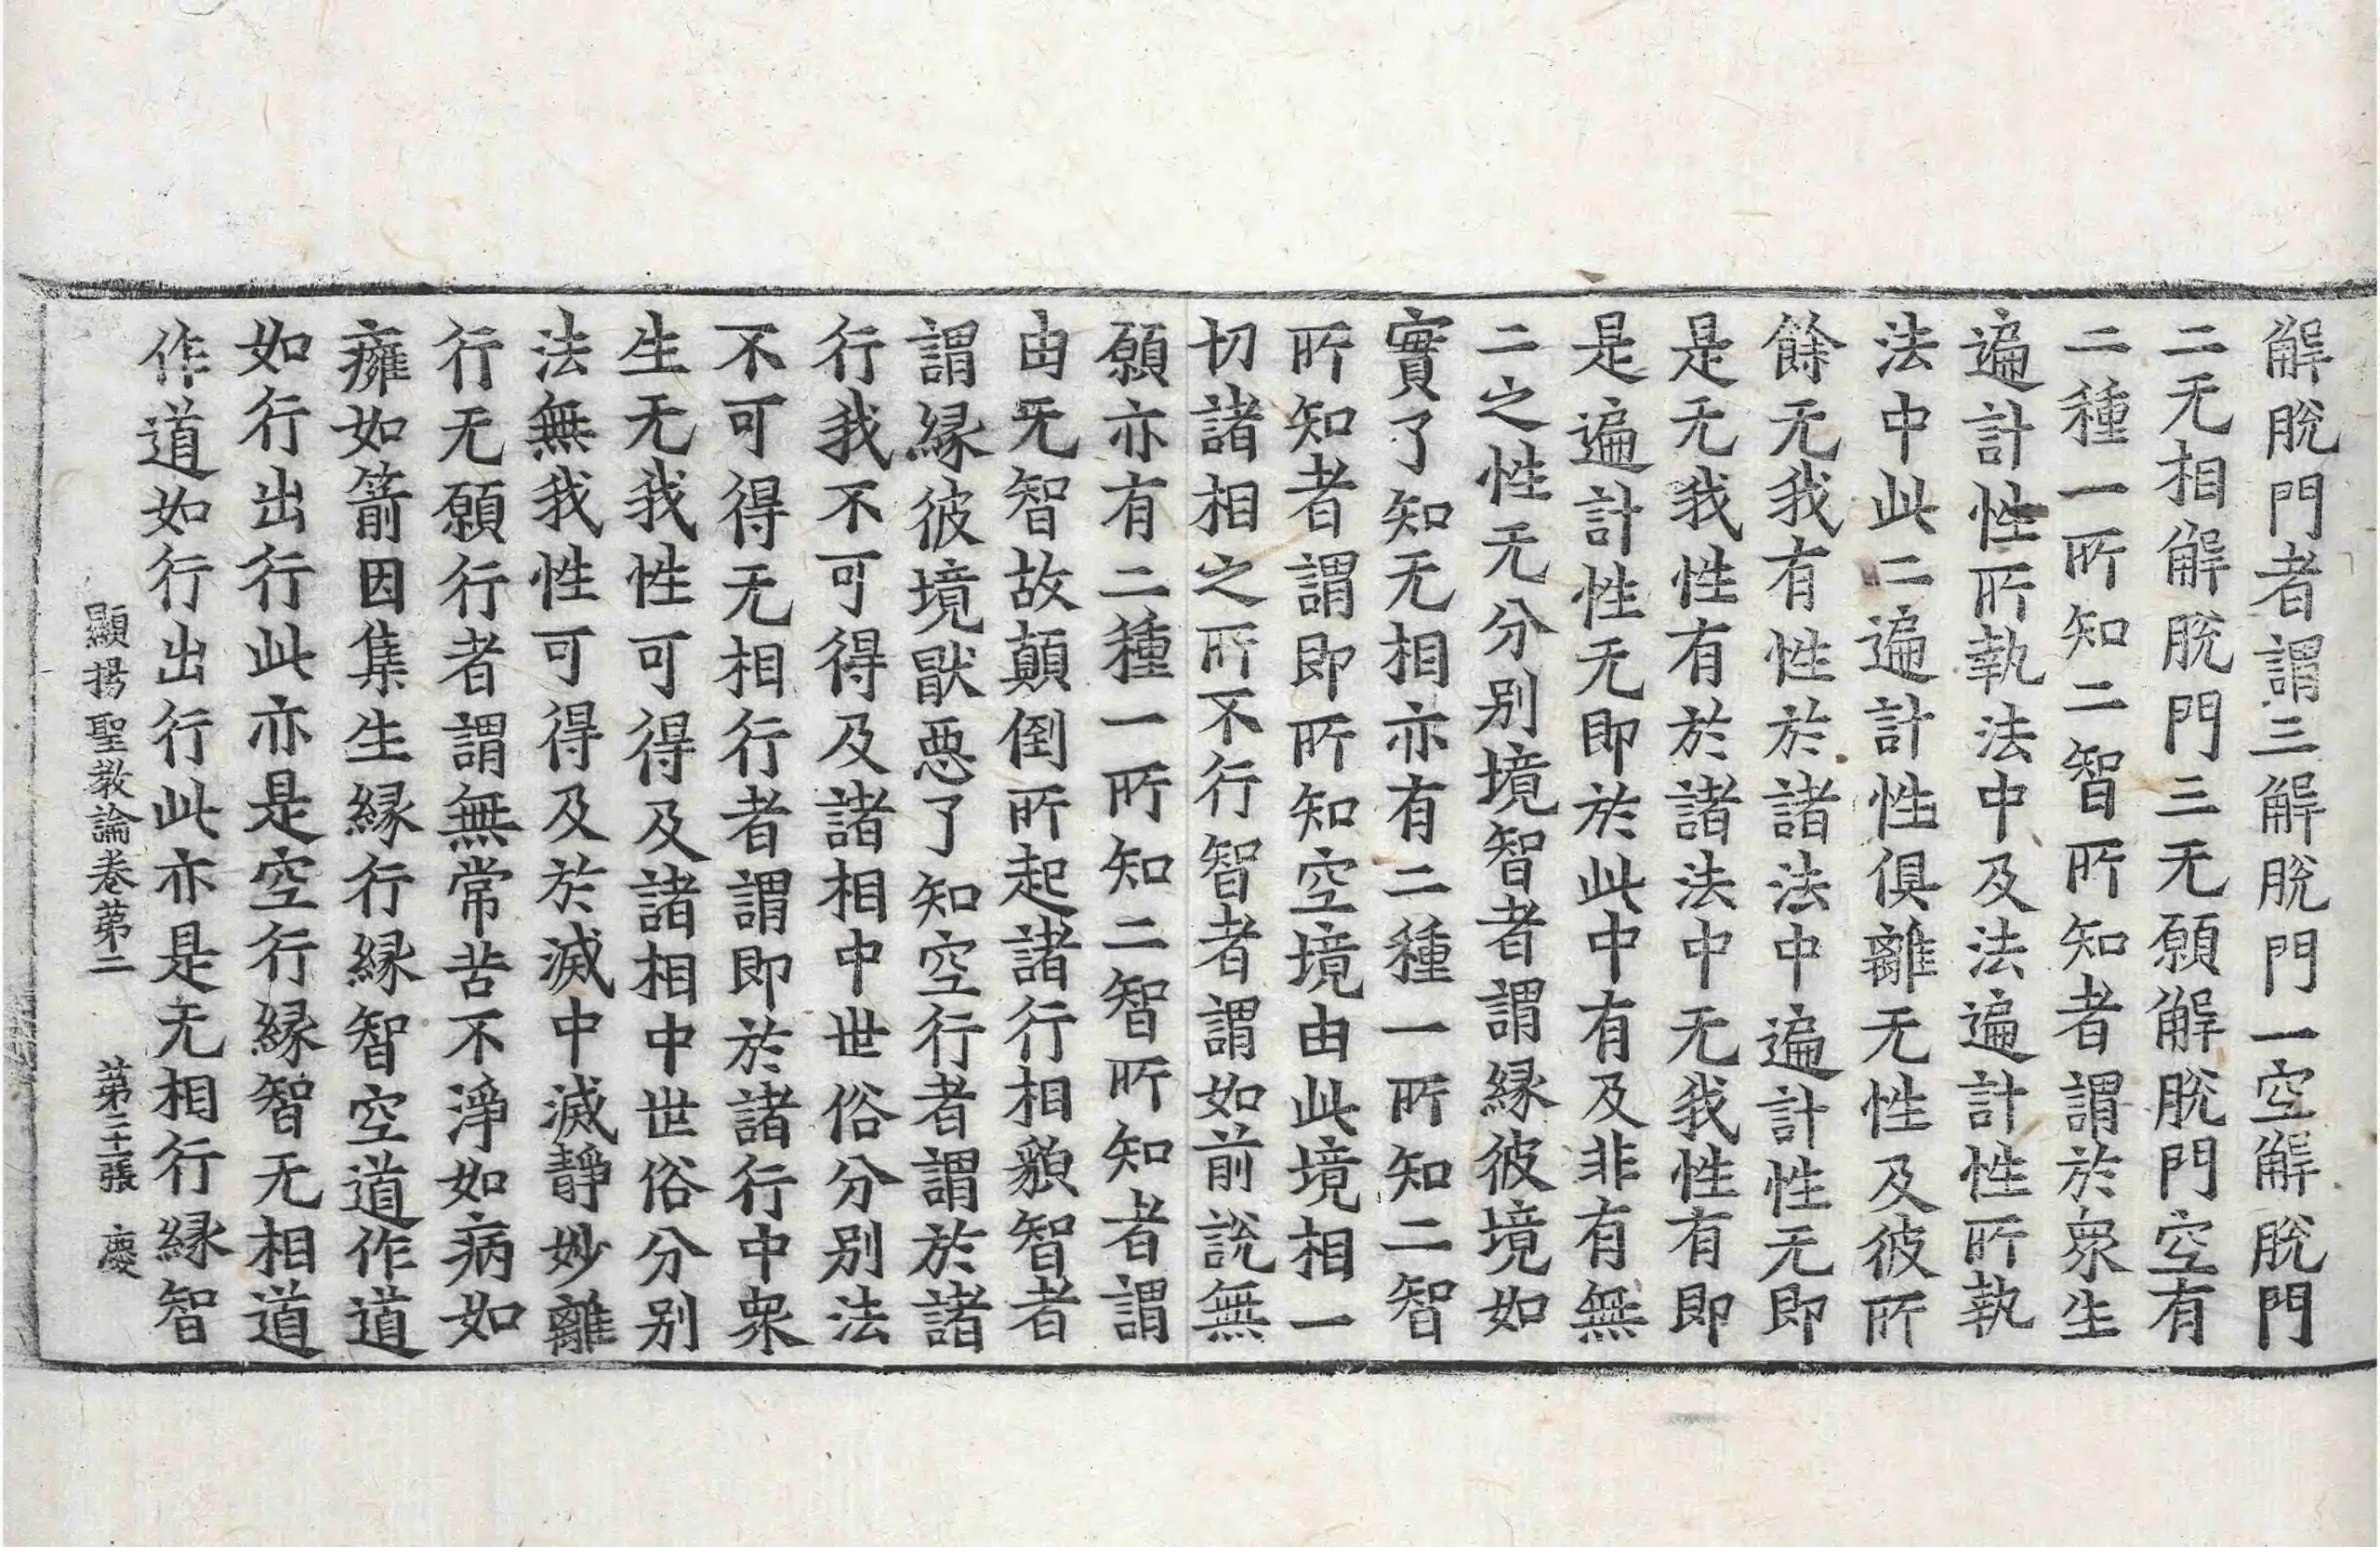 解脫門者謂三解脫門一空解脫門
二无相解脫門三无願解脫門空有
二種一所知二智所知者謂於衆生
遍計性所執法中及法遍計性所執
法中此二遍計性俱離无性及彼所
餘无我有性於諸法中遍計性无即
是无我性有於諸法中无我性有即
是遍計性无即於此中有及非有無
二之性无分別境智者謂緣彼境如
實了知无相亦有二種一所知二智
所知者謂即所知空境由此境相一
切諸相之所不行智者謂如前說無
願亦有二種一所知二智所知者謂
由无智故顛倒所起諸行相䫉智者
謂緣彼境猒惡了知空行者謂於諸
行我不可得及諸相中世俗分別法
不可得无相行者謂即於諸行中衆
生无我性可得及諸相中世俗分別
法無我性可得及於滅中滅靜妙離
行无願行者謂無常苦不淨如病如
癰如箭因集生緣行緣智空道作道
如行出行此亦是空行緣智无相道
作道如行出行此亦是无相行緣智
顯揚聖教論卷苐二 苐二十張 慶